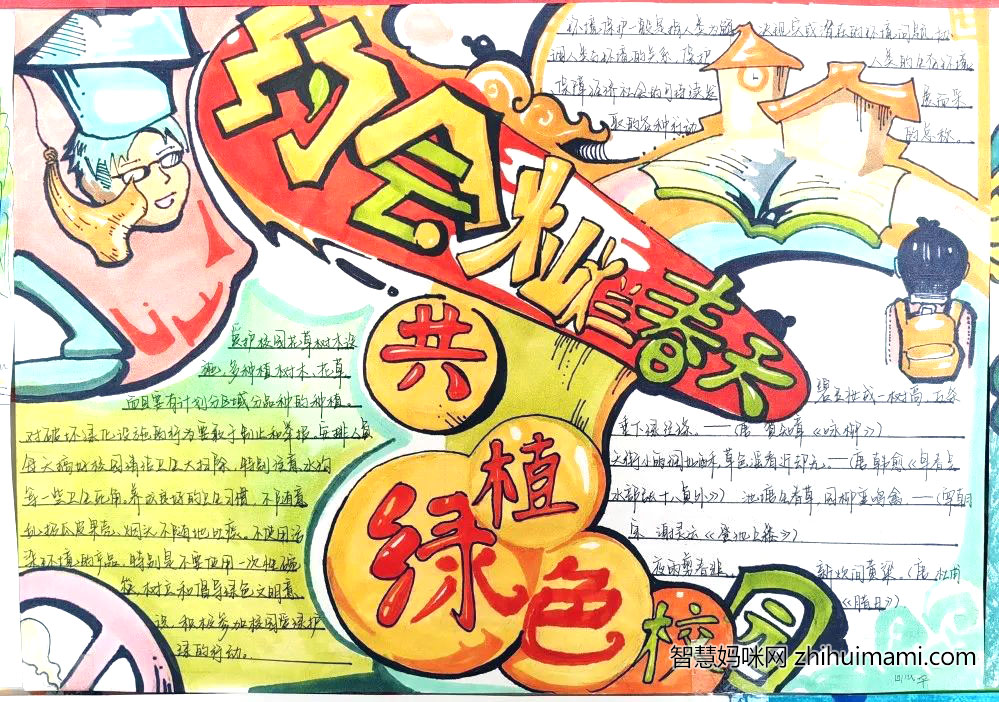 约会灿烂春天
共植绿色校园
环境保护一般是指人类为解决现实或潜在的环境问题,协
调人类与环境的关系,保护人类的生存环境、
保障经济社会的可持续发展而采
取的各种行动的总称。
爱护校园花草树木设
施,多种植树木、花草
而且要有计划分区域分品种的种植。
对破坏绿化设施的行为要敢于制止和举报。安排人员
每天搞好校园清洁卫生大扫除,特别注意水沟
等一些卫生死角。养成良好的卫生习惯,不随意
乱扔瓜皮果壳、烟头不随地吐痰。不使用污
染环境的产品,特别是不要使用一次性碗
筷,树立和倡导绿色文明意
识,积极参加校园爱绿护
绿的行动。
碧玉妆成一树高,万条
垂下绿丝绦。——(唐 贺知章《咏柳》)
天街小雨润如酥,草色遥看近却无。—(唐 韩愈《早春呈
水部张十八员外》) 池塘生春草,园柳变鸣禽 —(南朝
宋 谢灵运《登池上楼》)
夜雨剪春韭,新炊间黄粱。(唐 杜甫
智慧妈咪网 zhihuimami.com